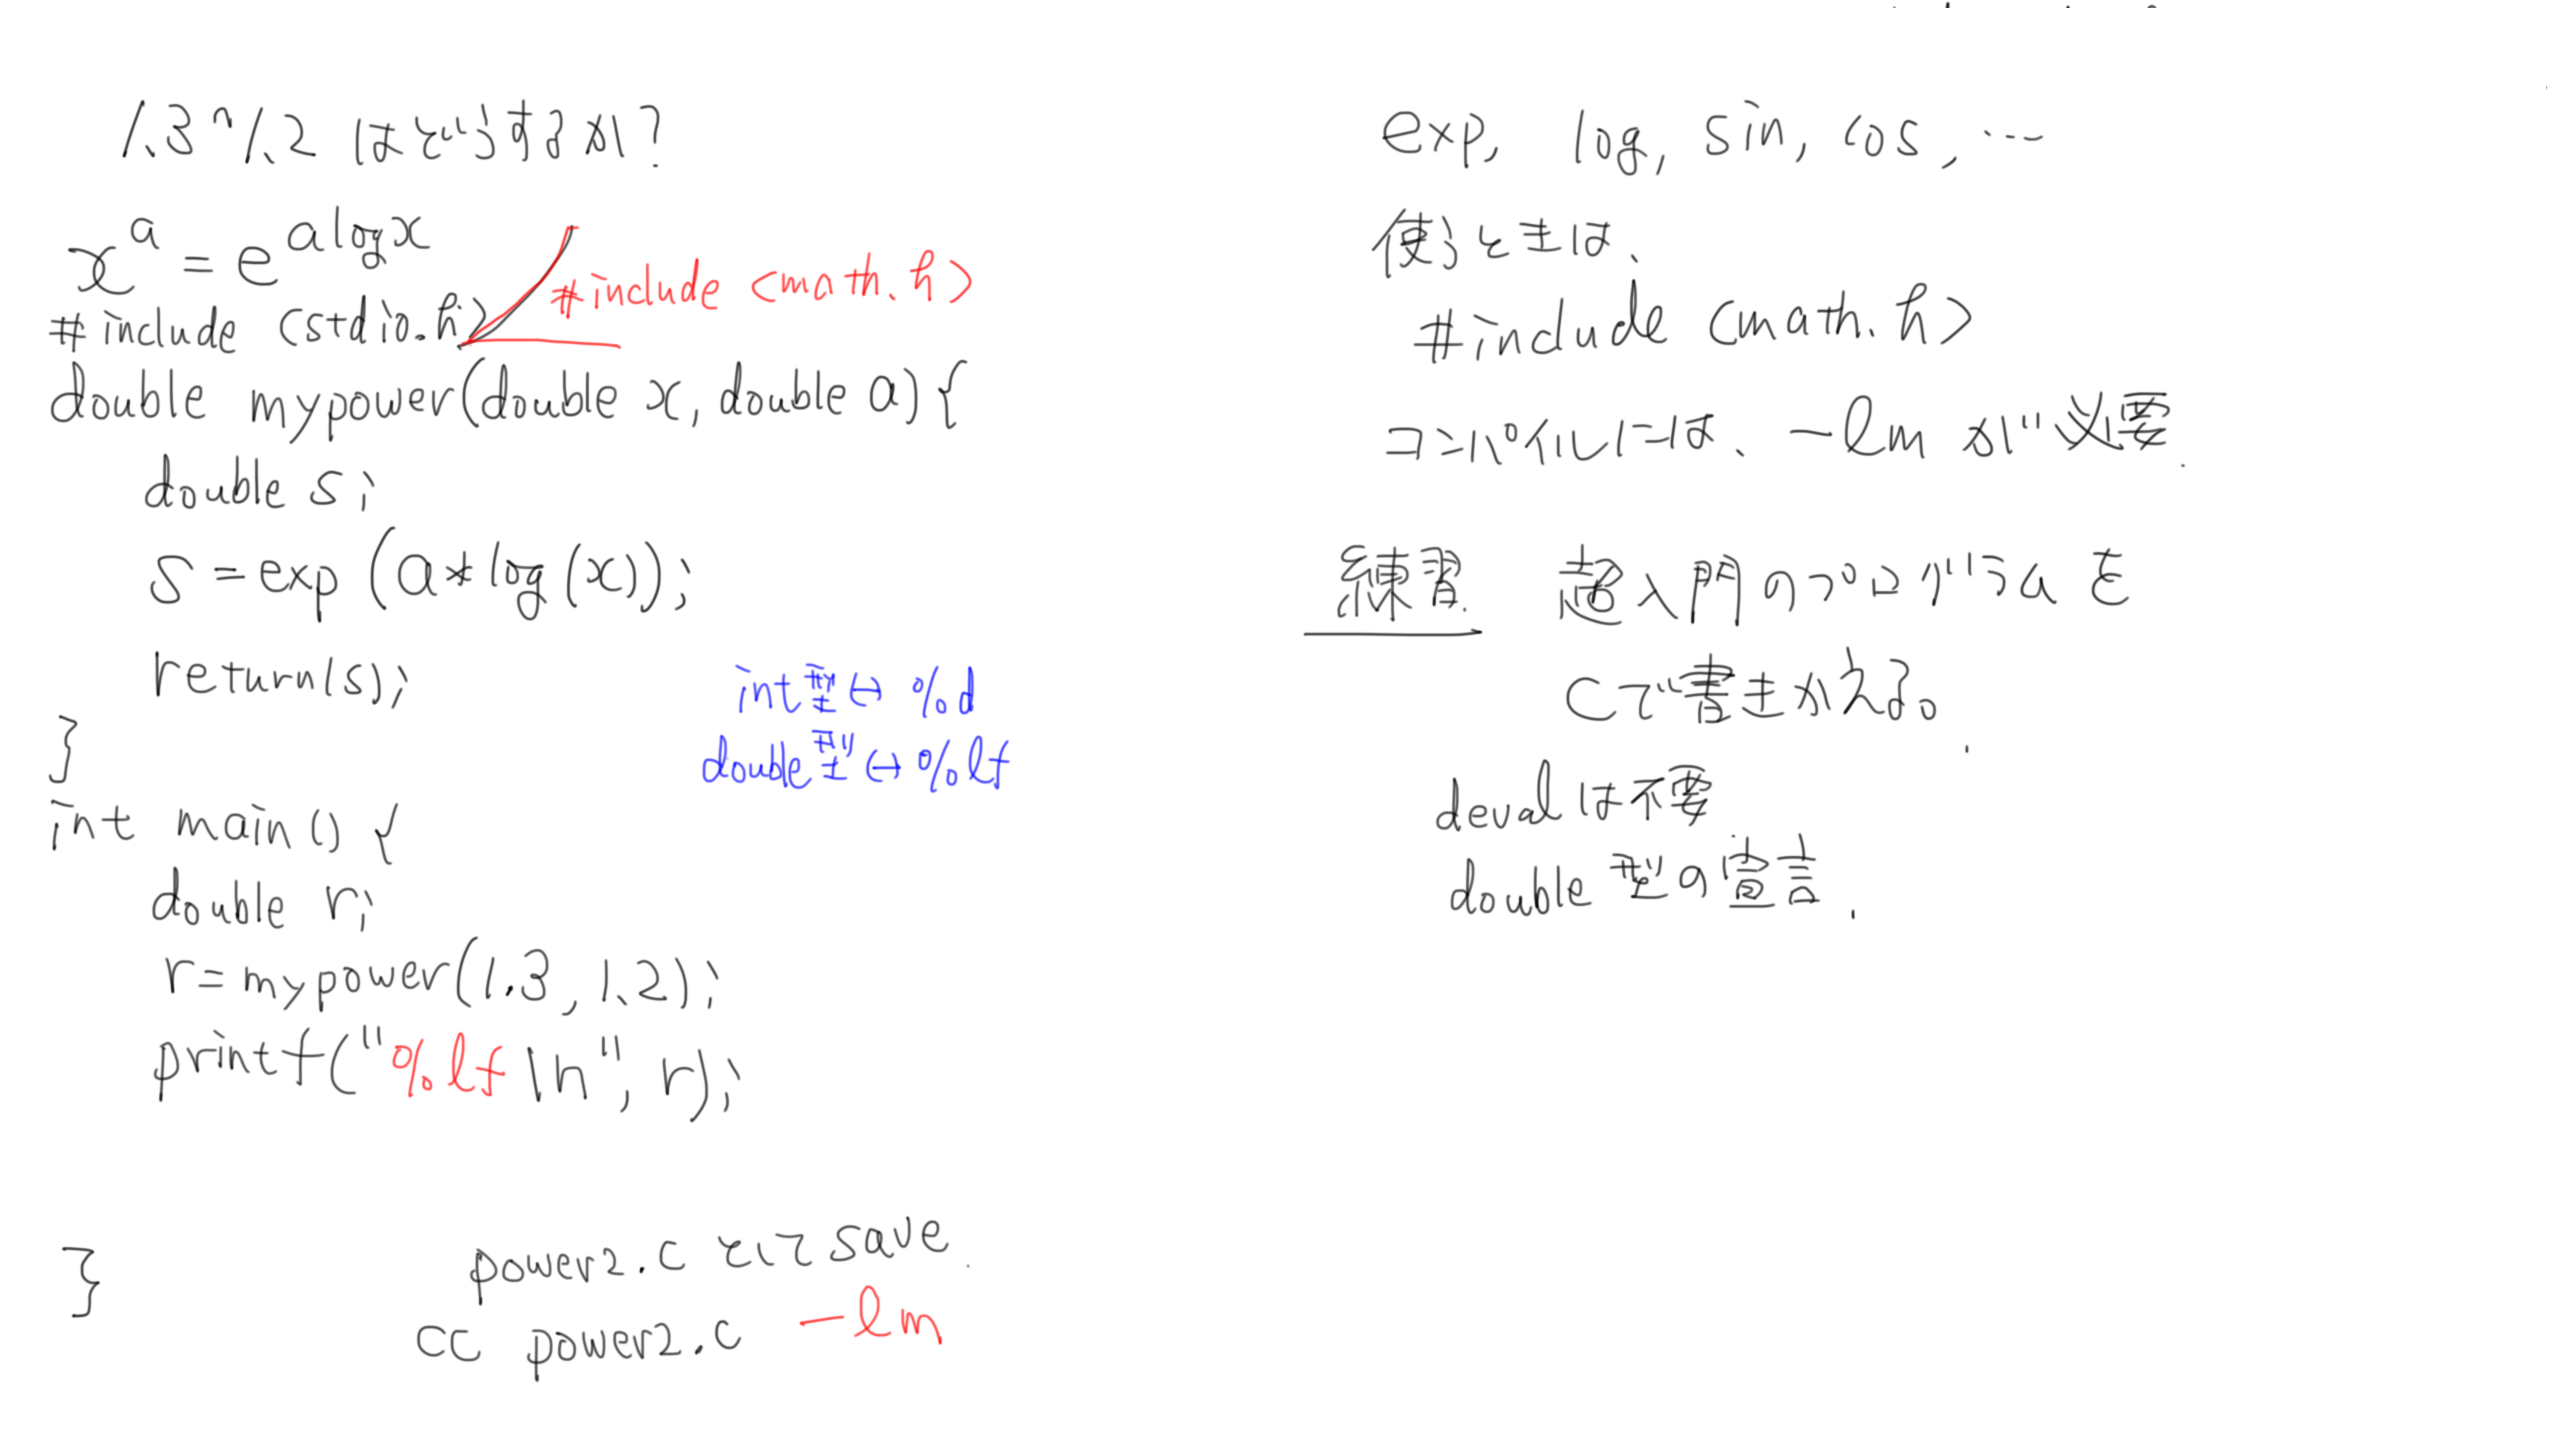 1.3^1.2 はどうするか?
x^a = e^{a log x}
#include <stdio.h>
#include <math.h>
double mypower(double x, double a) {
double s;
s = exp (a * log (x));
return(s);
}
int型 ↔ %d
double型 ↔ %lf
int main () {
double r;
r = mypower(1.3, 1.2);
printf("%lf \n", r);
}
power2.c として save.
cc power2.c -lm
exp, log, sin, cos, …
使うときは、
#include <math.h>
コンパイルには、-lm が必要.
練習 超入門のプログラムを
Cで書きかえる。
devalは不要
double 型の宣言.